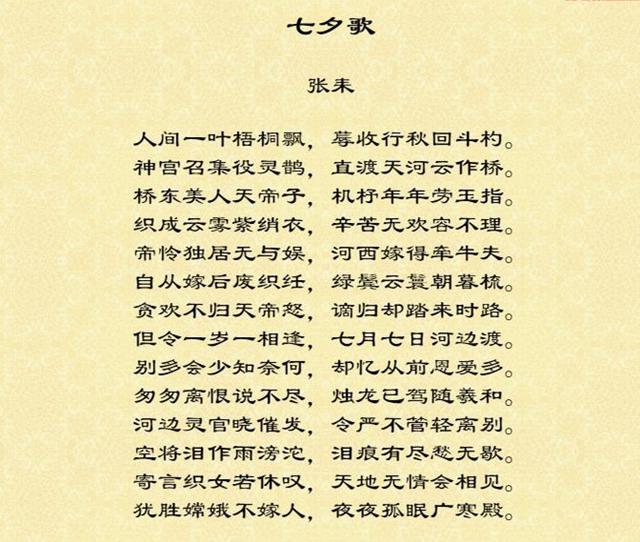 七夕歌
张耒
人间一叶梧桐飘，蓐收行秋回斗杓。
神宫召集役灵鹊，直渡天河云作桥。
桥东美人天帝子，机杼年年劳玉指。
织成云雾紫绡衣，辛苦无欢容不理。
帝怜独居无与娱，河西嫁得牵牛夫。
自从嫁后废织纴，绿鬓云鬟朝暮梳。
贪欢不归天帝怒，谪归却踏来时路。
但令一岁一相逢，七月七日河边渡。
别多会少知奈何，却忆从前恩爱多。
匆匆离恨说不尽，烛龙已驾随羲和。
河边灵官晓催发，令严不管轻离别。
空将泪作雨滂沱，泪痕有尽愁无歇。
寄言织女若休叹，天地无情会相见。
犹胜嫦娥不嫁人，夜夜孤眠广寒殿。